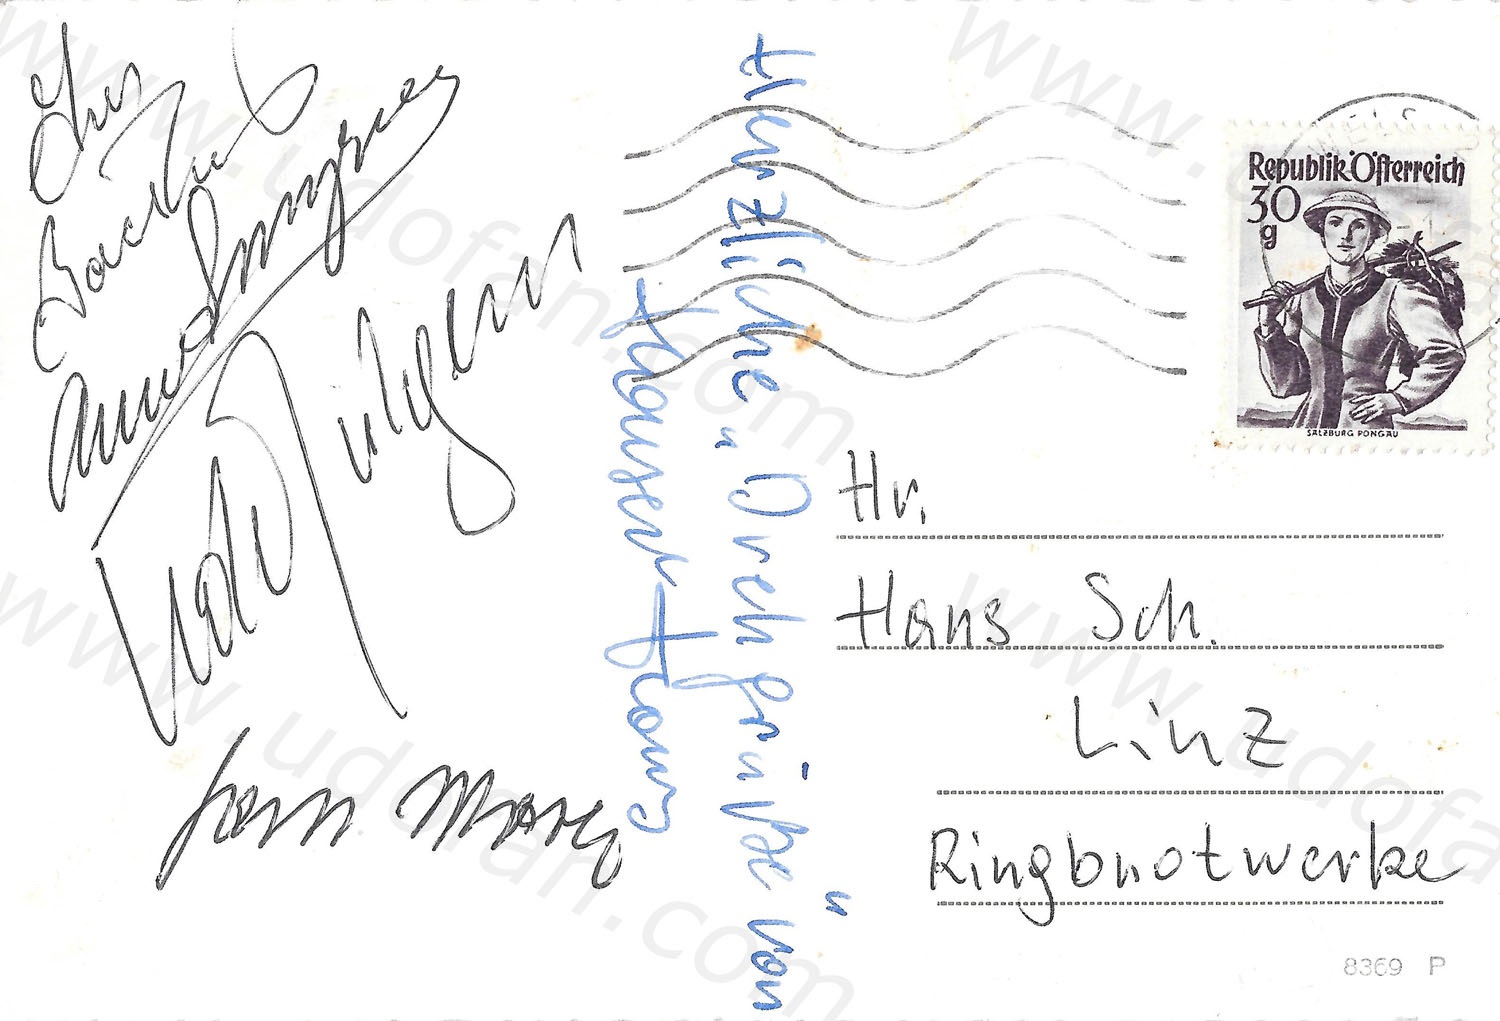 Udo Jürgens
Herzliche "Drehgrüße" von
Hauser Franz
Republik Österreich
30
g
SALZBURG PONGAU
Hr.
Hans Sch.
Linz
Ringbrotwerke
8369 P
www.udofan.com
www.udofan.com
www.udofan.com
www.udofan.com